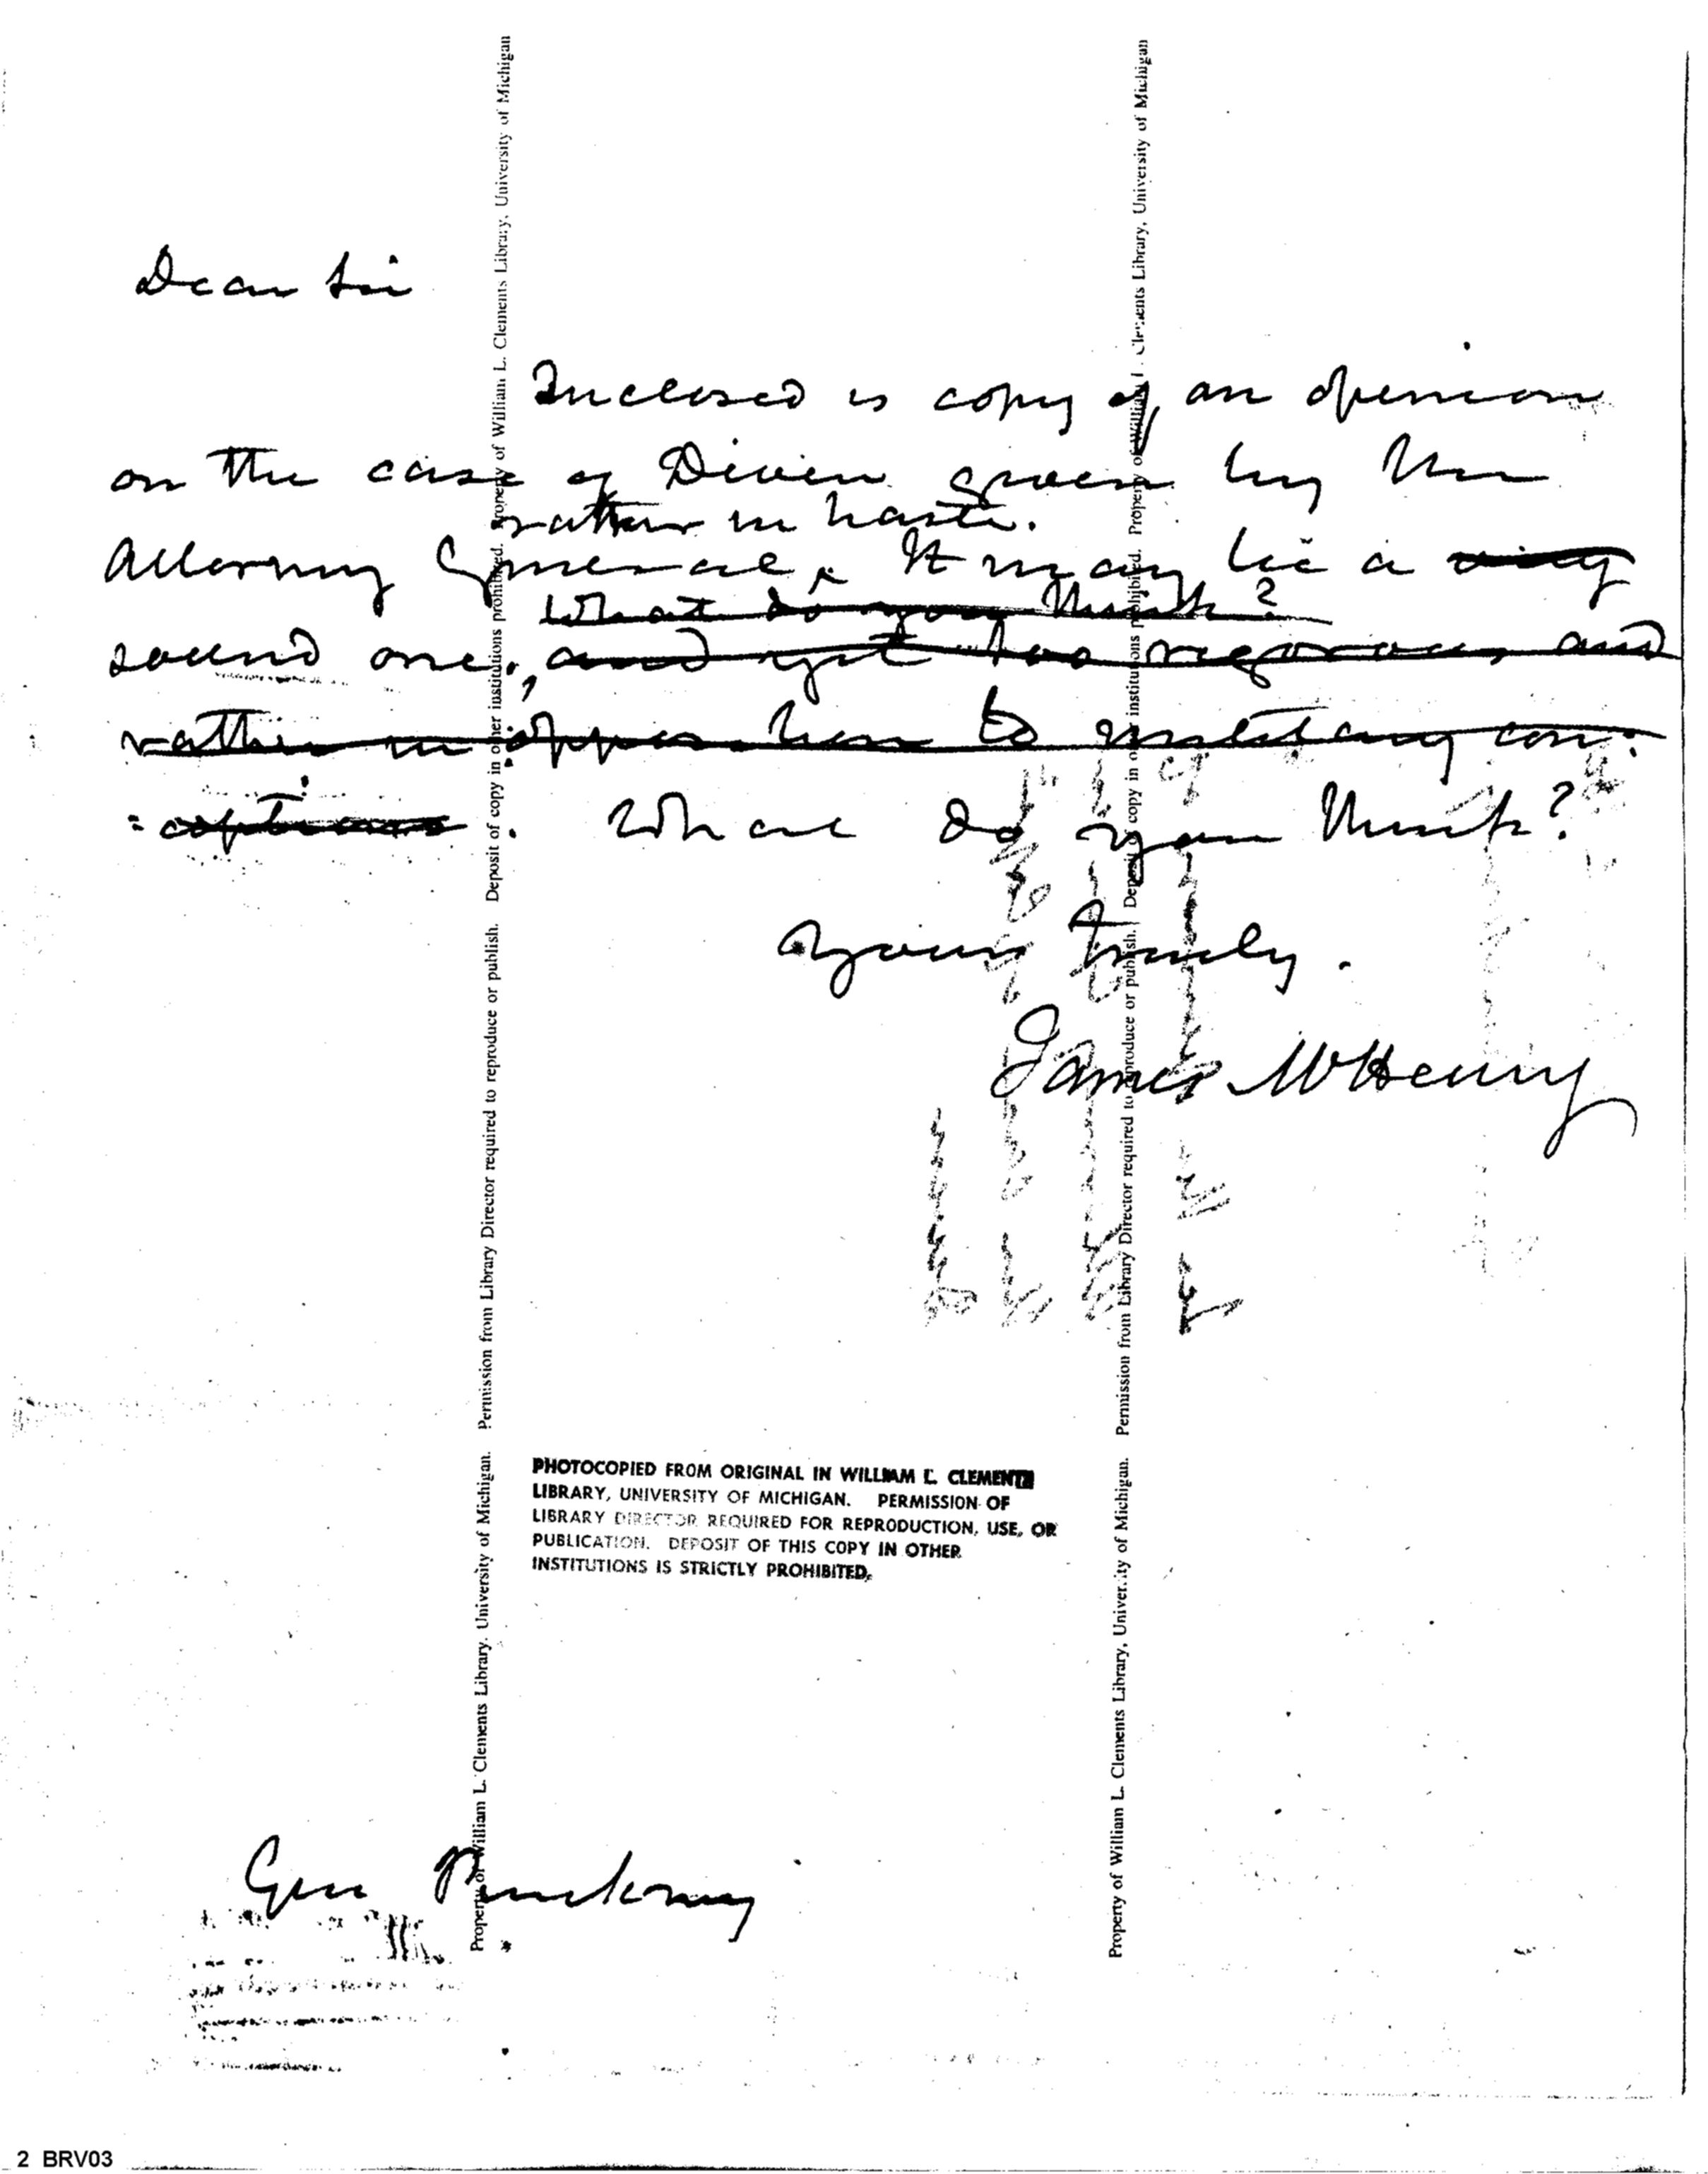 Dear Sir
Inclosed is copy of an opinion
on the case of Diven given by the
rather in haste.
Attorney General, ‸ It may be a very
What do you think?
sound one, and yet too rigorous and
rather in opposition to military con-
=ceptions. What do you think?
Yours truly.
James McHenry
PHOTOCOPIED FROM ORIGINAL IN WILLIAM L. CLEMENTS
LIBRARY, UNIVERSITY OF MICHIGAN. PERMISSION OF
LIBRARY DIRECTOR REQUIRED FOR REPRODUCTION, USE, OR
PUBLICATION. DEPOSIT OF THIS COPY IN OTHER
INSTITUTIONS IS STRICTLY PROHIBITED.
Gen Pinckney
Property of William L. Clements Library, University of Michigan. Permission from Library Director required to reproduce or publish. Deposit of copy in other institutions prohibited. Property of William L. Clements Library, University of Michigan
Property of William L. Clements Library, University of Michigan. Permission from Library Director required to reproduce or publish. Deposit of copy in other institutions prohibited. Property of William L. Clements Library, University of Michigan
2 BRV03